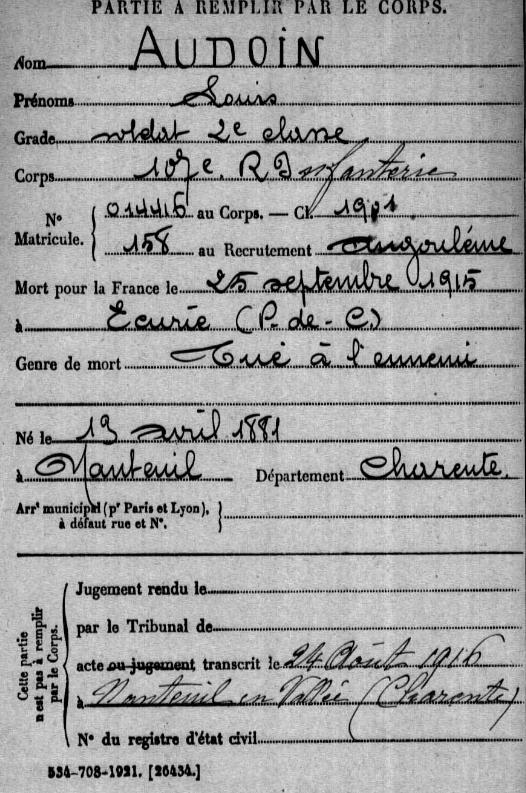 PARTIE A REMPLIR PAR LE CORPS.
Nom AUDOIN
Prénoms Louis
Grade soldat 2e classe
Corps 107e R Infanterie
N° Matricule. { 014416 au Corps. — Cl. 1901
158 au Recrutement Angoulême
Mort pour la France le 25 septembre 1915
à Ecurie (P-de-C)
Genre de mort Tué à l'ennemi
Né le 13 avril 1881
à Nanteuil Département Charente.
Arrt municipal (pr Paris et Lyon), à défaut rue et N°. }
Cette partie n'est pas à remplir par le Corps.
Jugement rendu le
par le Tribunal de
acte ou jugement transcrit le 24 Août 1916
à Nanteuil en Vallée (Charente)
N° du registre d'état civil
534-708-1921. [26434.]